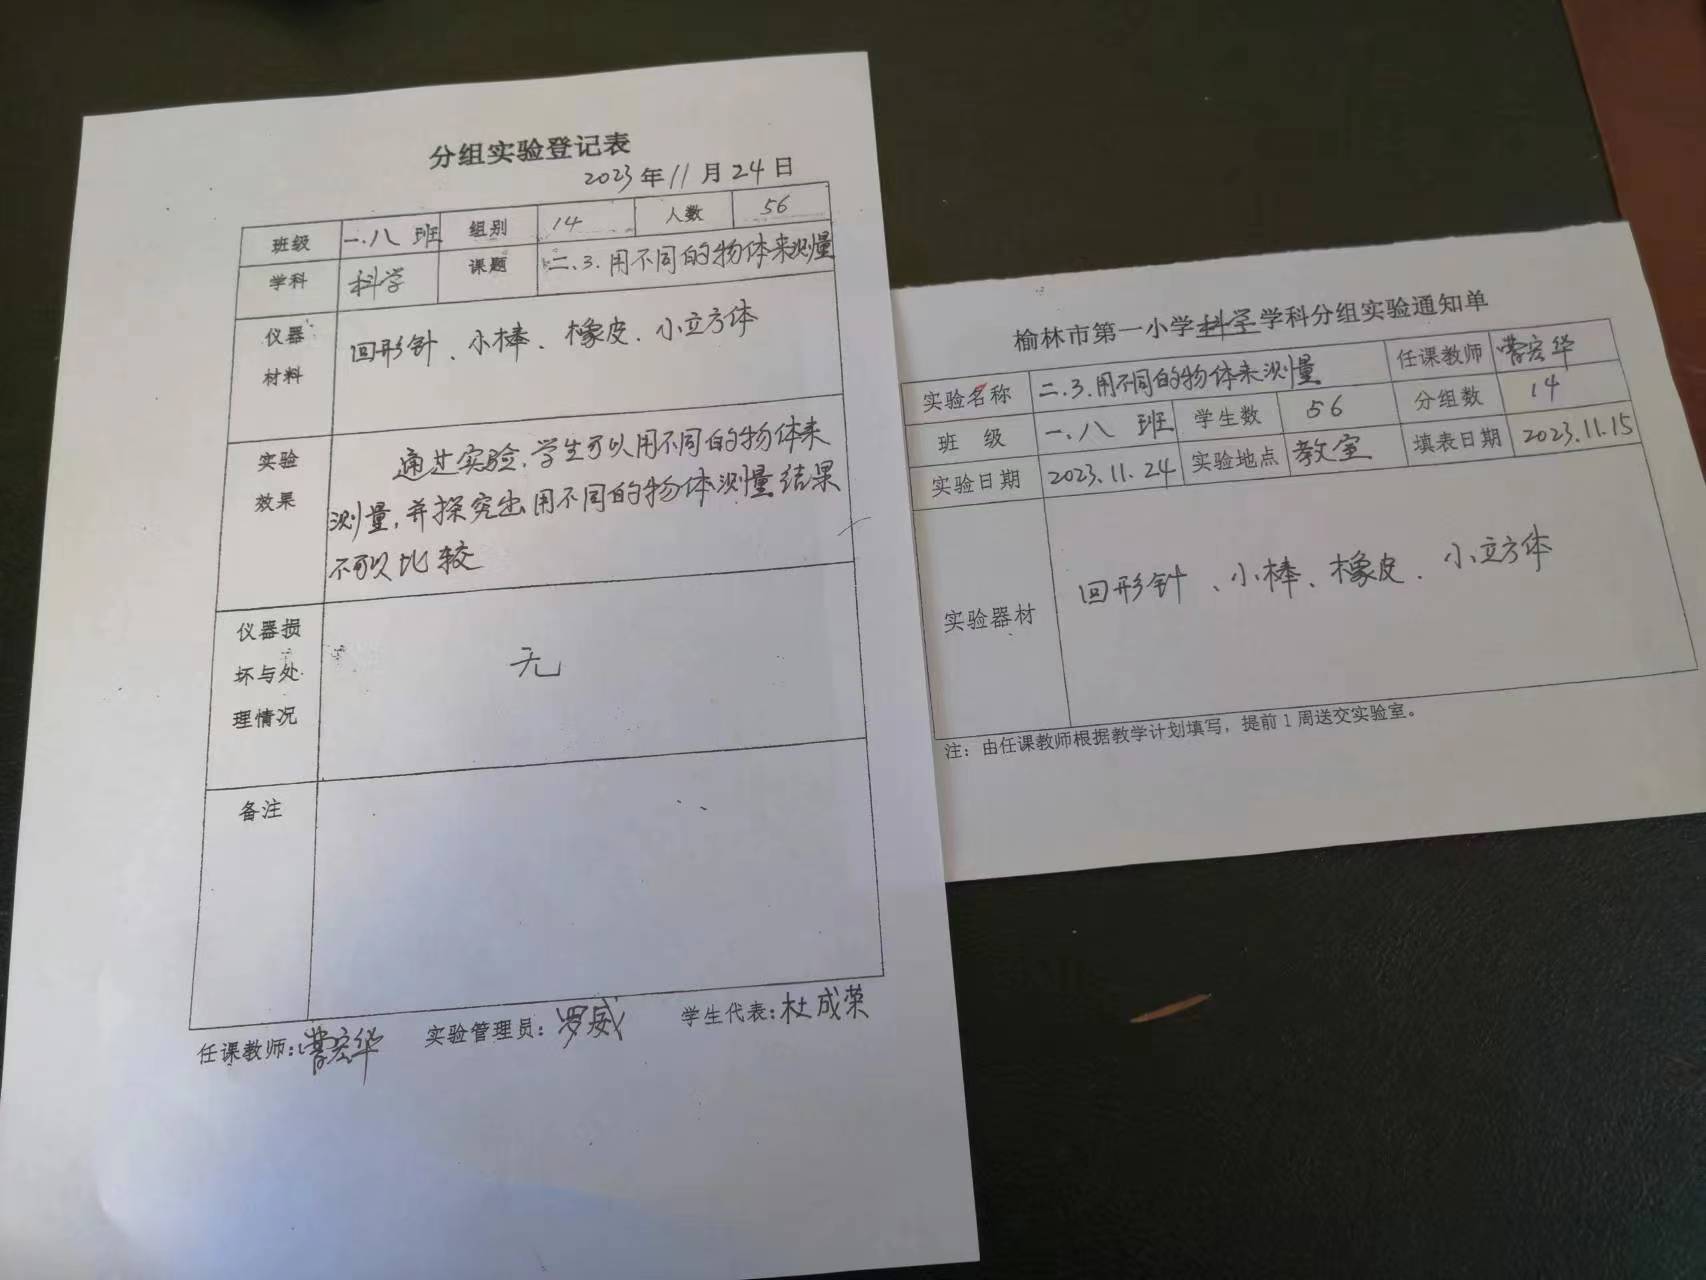 分组实验登记表
2023年11月24日
班级 一.八 班 组别 14 人数 56
学科 科学 课题 二.3.用不同的物体来测量
仪器材料 回形针、小棒、橡皮、小立方体
实验效果 通过实验,学生可以用不同的物体来
测量,并探究出用不同的物体测量结果
不可以比较
仪器损坏与处理情况 无
备注
任课教师:曹宏华 实验管理员:罗威 学生代表:杜成荣
榆林市第一小学科学学科分组实验通知单
实验名称 二.3.用不同的物体来测量 任课教师 曹宏华
班 级 一.八 班 学生数 56 分组数 14
实验日期 2023.11.24 实验地点 教室 填表日期 2023.11.15
实验器材 回形针、小棒、橡皮、小立方体
注:由任课教师根据教学计划填写,提前1周送交实验室。